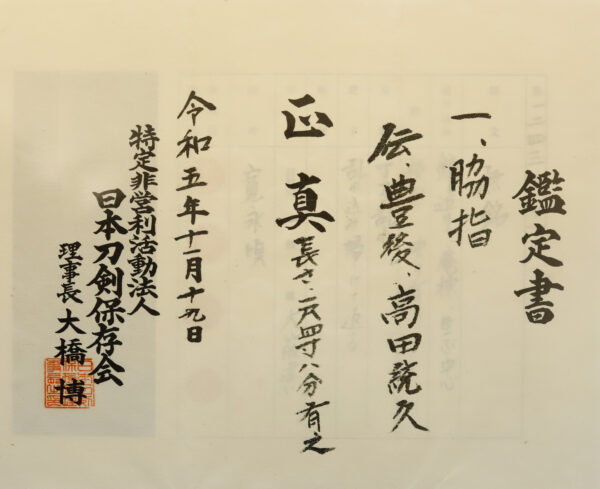 鑑定書
一、脇指
伝、豊後、高田統久
正真 長さ、一尺四寸八分有之
令和五年十一月十九日
特定非営利活動法人
日本刀剣保存会
理事長 大橋博